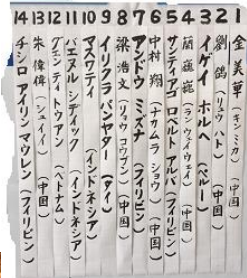 1 金美華（キンミカ）（中国）
2 劉鴿（リュウハト）（中国）
3 イゲイ ホルヘ（ペルー）
4 簡巍巍（ランウェイウェイ）（中国）
5 サンティアゴ ロベルト アルバ（フィリピン）
6 中村 翔（ナカムラショウ）（中国）
7 アンドウ ミズナ（フィリピン）
8 梁浩文（リョウコウブン）（中国）
9 イリクラ パンヤター（タイ）
10 アスワティ（インドネシア）
11 バエヌル シディック（インドネシア）
12 グエン ティ トゥアン（ベトナム）
13 朱偉偉（シュイイ）（中国）
14 チシロ アイリン マウレン（フィリピン）